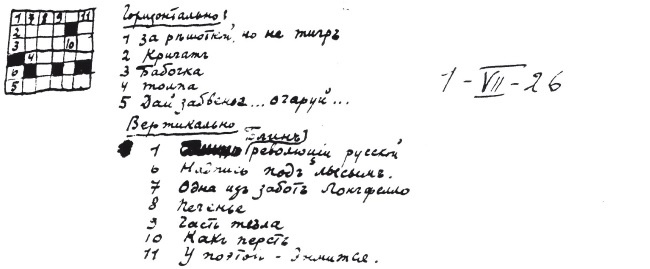 1 7 8 9 11
2
3 10
4
6
5
Горизонтально:
1 За рѣшоткой, но не тигръ
2 Кричатъ
3 Бабочка
4 толпа
5 Дай забвенье... очаруй...
1 - VII - 26
Вертикально
1 Революціи русской
6 Надпись подъ лысымъ.
7 Одна изъ заботъ Лонгфелло
8 Печенье
9 Часть тезла
10 Какъ персть
11 У поэтов - Эмитъе.